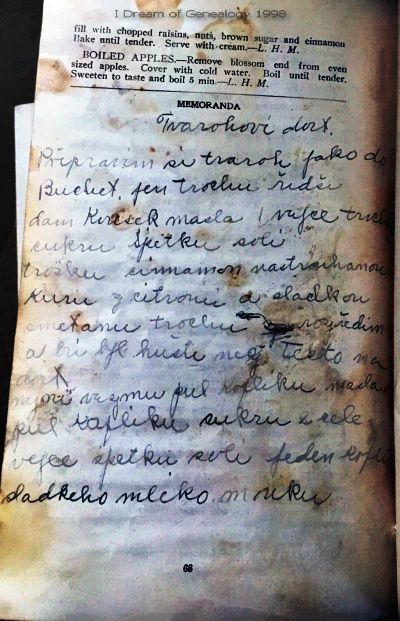 I Dream of Genealogy 1998
fill with chopped raisins, nuts, brown sugar and cinnamon
Bake until tender. Serve with cream.—L. H. M.
BOILED APPLES.—Remove blossom end from even
sized apples. Cover with cold water. Boil until tender.
Sweeten to taste and boil 5 min.—L. H. M.
MEMORANDA
Tvarohovi dort.
Připravim si tvaroh jako do
Buchet. jen trochu řidši
dam Kousek masla 1 vajce
cukru špetku soli
trošku cinnamon nastrouhanou
kuru z citronu a sladkou
smetanu trochu rozředim
a bi bil hušte než Testo na
dort
vezmu pul kofliku masla
pul kofliku cukru 2 cele
vejce špetku soli jeden
sladkeho mlico. mouku
68